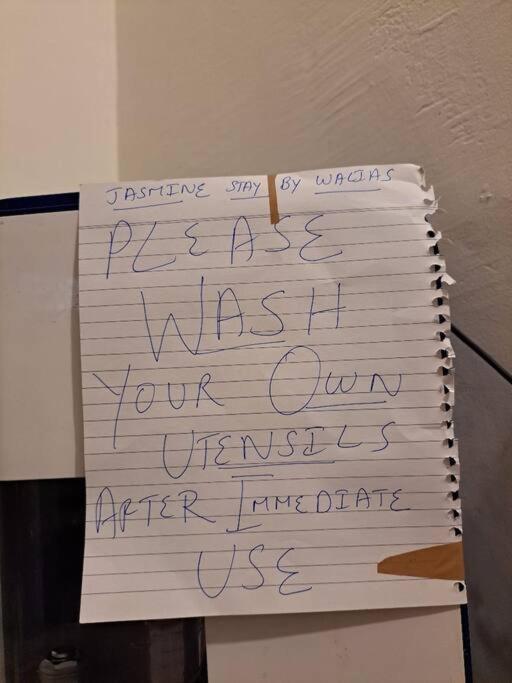 JASMINE STAY BY WALIAS
PLEASE
WASH
YOUR OWN
UTENSILS
AFTER IMMEDIATE
USE